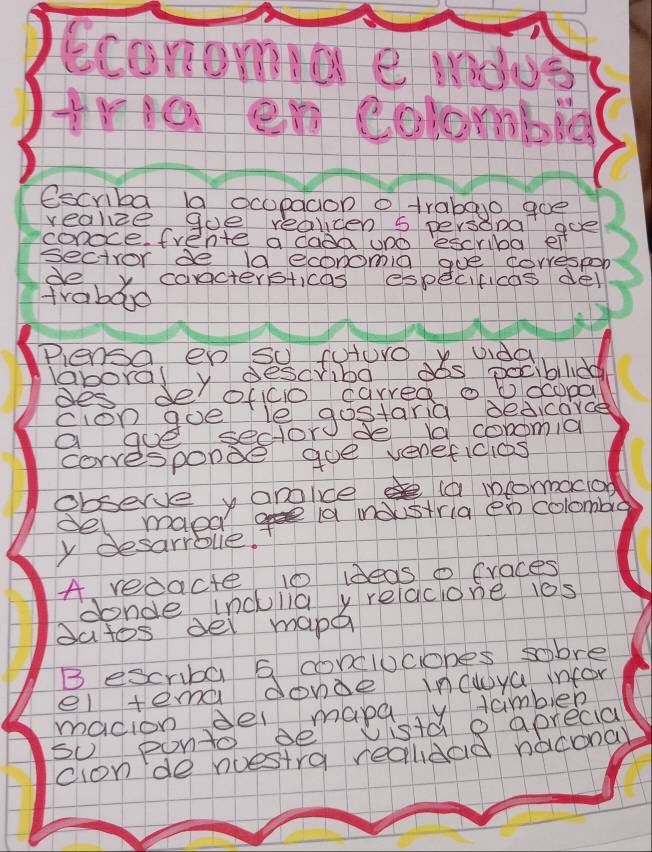 Economia e indus
tria en Colombia
Escriba la ocupacion o trabajo que
realize que realicen 5 persona que
conoce. frente a cada uno escriba el
sectror de la economia que correspon
de y caracteristicas especificas del
trabajo
Piensa en su futuro y vida
laboral y describa dos pocibilida
des de oficio carrea o u ocupa
cion que le gustaria dedicarce
a que sector de la conomia
corresponde que veneficios
observe y analice la informacion
del mapa la industria en colombia
y desarrolle.
A redacte 10 ideas o fraces
donde inclulla y relacione los
datos del mapa
B escriba 5 concluciones sobre
el tema donde incluya infor
macion del mapa y tambien
su punto de vista o aprecia
cion de nuestra realidad nacional